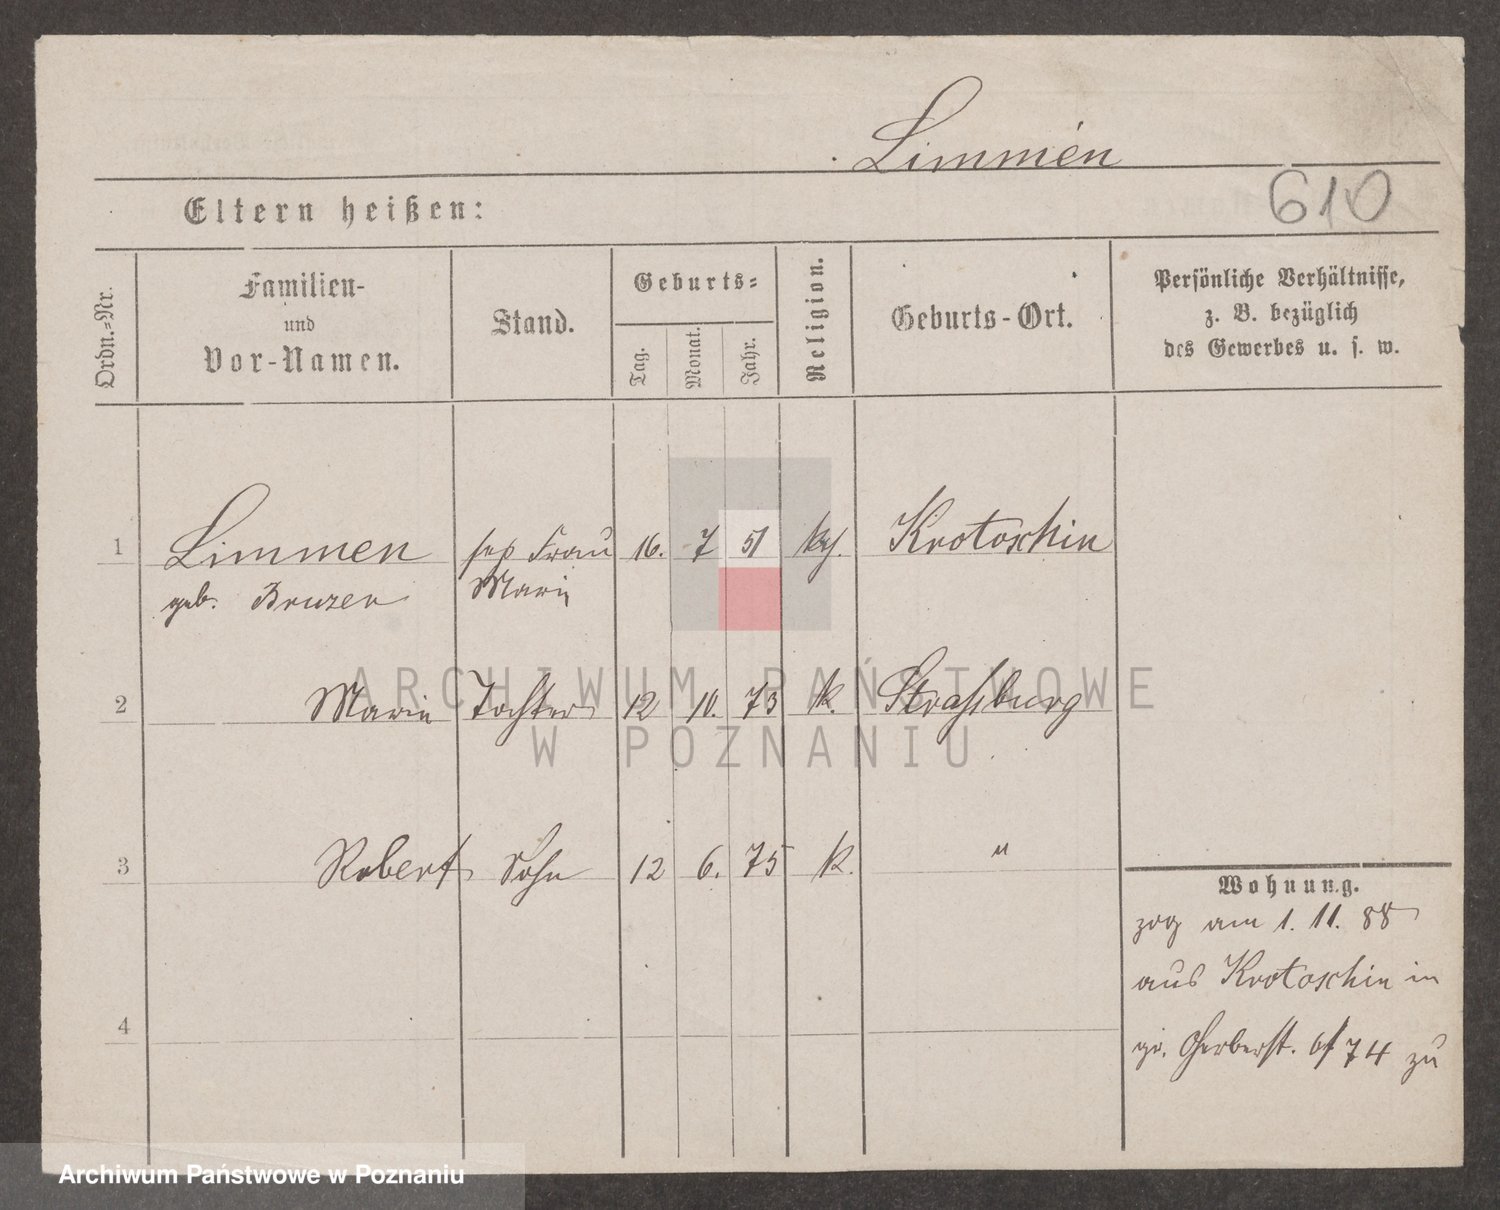 Limmen
610
Eltern heißen:
Ordn.=Nr.
Familien-
und
Vor-Namen.
Stand.
Geburts=
Tag.
Monat.
Jahr.
Religion.
Geburts-Ort.
Persönliche Verhältnisse,
z. B. bezüglich
des Gewerbes u. s. w.
1 Limmen sep Frau 16. 7 51 Krotoschin
geb. Bruzer Marie
2 Marie Tochter 12 10. 73 k. Strassburg
3 Robert Sohn 12 6. 75 k. "
4
Wohnung.
zog am 1. 11. 88
aus Krotoschin in
gr. Gerberst. 6/74 zu
ARCHIWUM PAŃSTWOWE
W POZNANIU
Archiwum Państwowe w Poznaniu